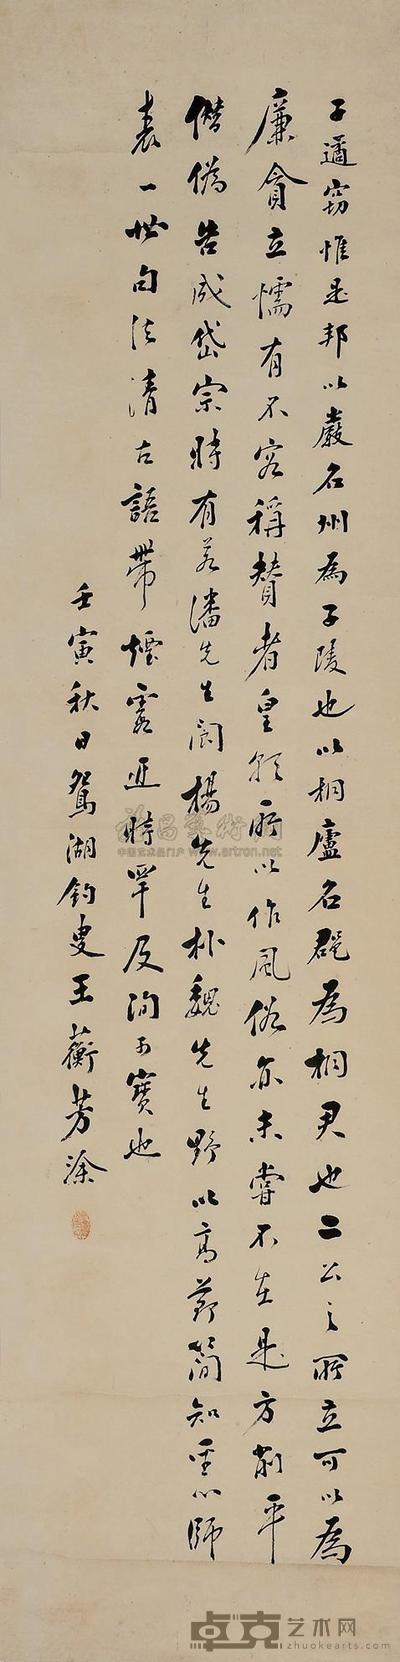 子遹窃惟是邦以嚴名州為子陵也以桐廬名縣為桐君也二公之所立可以為
廉貪立懦有不容稱贊者皇朝所以作風俗亦未嘗不在是方削平
僭偽告成岱宗時有若潘先生閬楊先生朴魏先生野以高節簡知聖心師
表一世句法清古語帶煙霞近時罕及洵可寶也
壬寅秋日鴛湖釣叟王蘅芳塗
中国艺术品门户 www.artron.net
卓克艺术网
zhuokearts.com